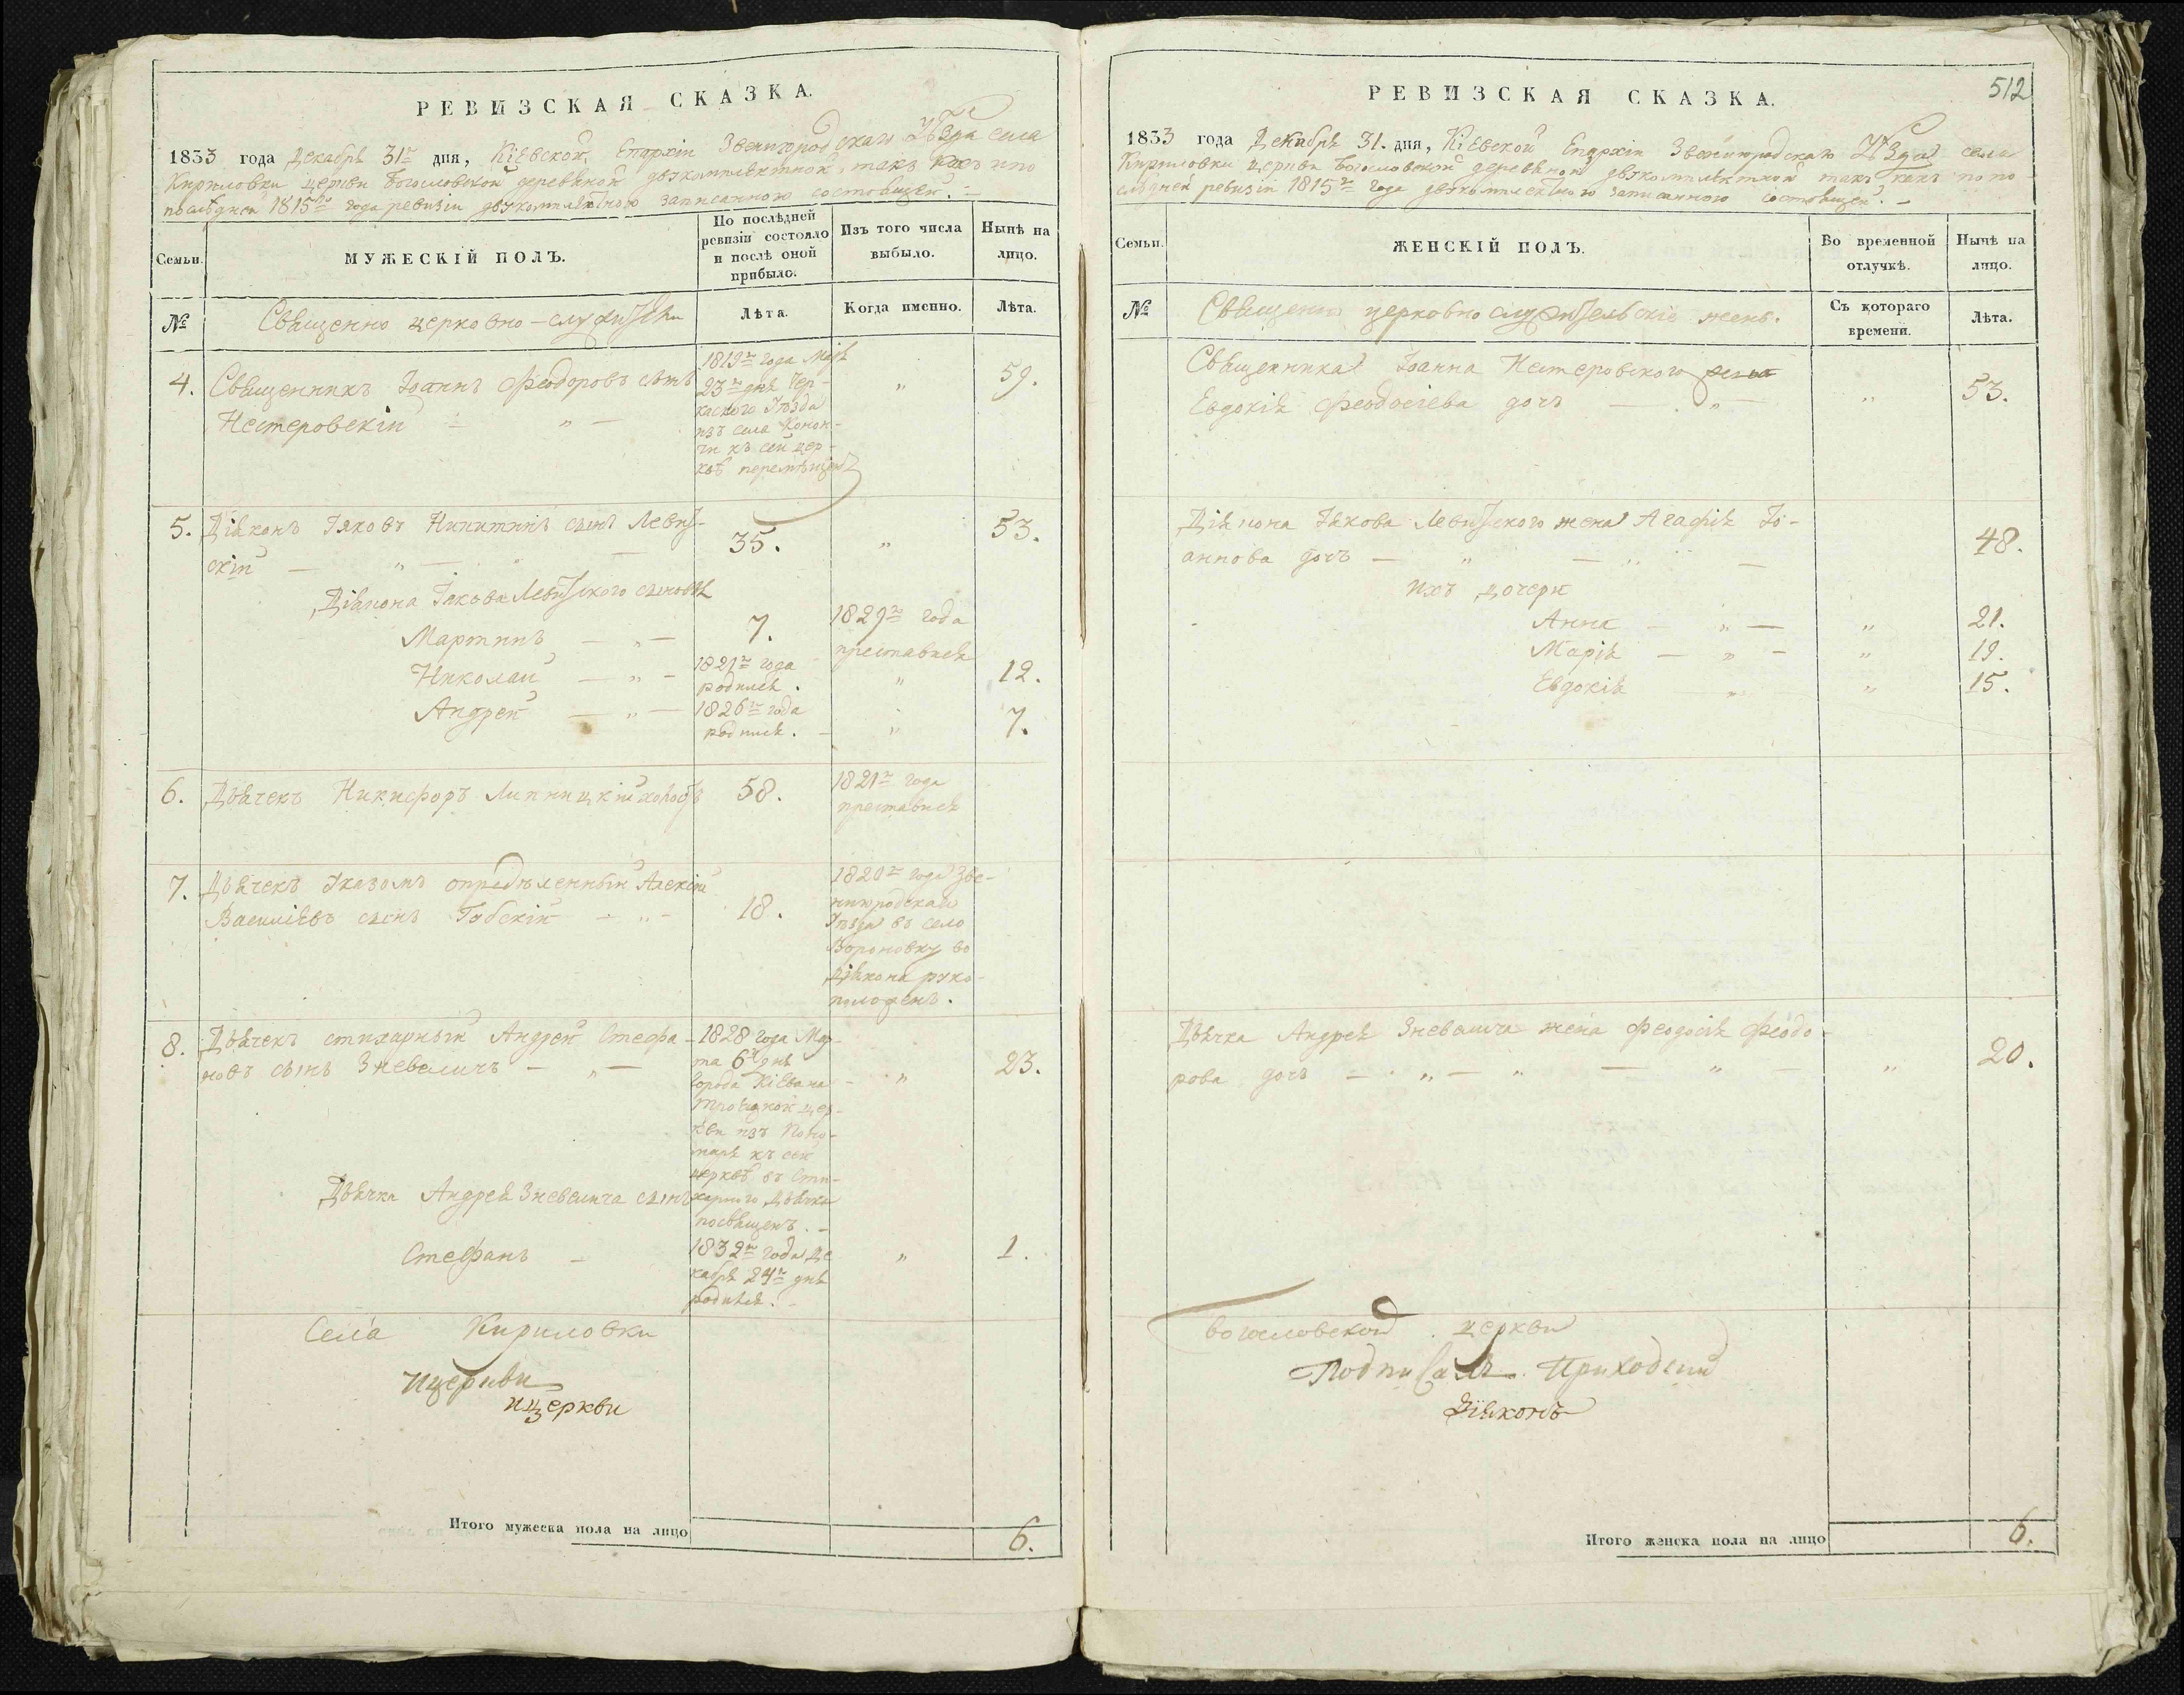 РЕВИЗСКАЯ СКАЗКА.
1833 года Декабря 31го дня, Кіевской Епархіи Звенигородскаго Уѣзда села
Кириловки церкви Богословской деревяной двукомплектной, такъ какъ и по
послѣдней 1815го года ревизіи двукомплектною записанною состоящей. —
Семьи.
МУЖЕСКІЙ ПОЛЪ.
По послѣдней
ревизіи состояло
и послѣ оной
прибыло.
Изъ того числа
выбыло.
Нынѣ на
лицо.
№
Священно церковно-служители
Лѣта.
Когда именно.
Лѣта.
4. Священникъ Іоаннъ Феодоровъ сынъ
Нестеровскій — „ —
1819го года Маія
23го дня Чер-
каскаго Уѣзда
изъ села Конон-
чи къ сей цер-
квѣ перемѣщенъ
„
59.
5. Діаконъ Іяковъ Никитинъ сынъ Левит-
скій — „ — „ —
35.
„
53.
Діякона Іякова Левитского сыновья
Мартинъ — „ — 7. 1829го года
преставися
Николай — „ — 1821го года
родился. „ 12.
Андрей — „ — 1826го года
родился. — „ 7.
6. Дьячекъ Никифоръ Липницкій холостъ 58. 1821го года
преставися
7. Дьячекъ Указомъ опредѣленный Алексій
Василіевъ сынъ Гобскій — „ —
18.
1820го года Зве-
нигородскаго
Уѣзда въ село
Вороновку во
Діякона руко-
положенъ.
8. Дьячекъ стихарный Андрей Стефа-
новъ сынъ Зневаличъ — „ —
1828 года Мар-
та 6го дня
города Кіева на
Троицкой цер-
кви изъ Поно-
маря къ сей
церквѣ въ Сти-
харного Дьячка
посвященъ. —
„
23.
Дьячка Андрея Зневалича сынъ
Стефанъ — 1832го года Де
кабря 24го дня
родился. —
„
1.
Села Кириловки
и церкви
и церкви
Итого мужеска пола на лицо
6.
512
РЕВИЗСКАЯ СКАЗКА.
1833 года Декабря 31. дня, Кіевской Епархіи Звенигородскаго Уѣзда села
Кириловки церкви Богословской деревяной двукомплектной такъ какъ по по-
слѣдней ревизіи 1815го года двукомплектного записанною состоящей. —
Семьи.
ЖЕНСКІЙ ПОЛЪ.
Во временной
отлучкѣ.
Нынѣ на
лицо.
№
Священно церковно служительскіе жены.
Съ котораго
времени.
Лѣта.
Священника Іоанна Нестеровского жена
Евдокія Феодосіева дочь — „ —
„
53.
Діякона Іякова Левитского жена Агафія Іо-
аннова дочь — „ — „ —
48.
Ихъ дочери
Анна — „ — „ 21.
Марія — „ — „ 19.
Евдокія „ „ 15.
Дьячка Андрея Зневалича жена Феодосія Феодо-
рова дочь — „ — „ — „ — „ 20.
Богословской церкви
Подписалъ Приходскій
Діяконъ
Итого женска пола на лицо
6.